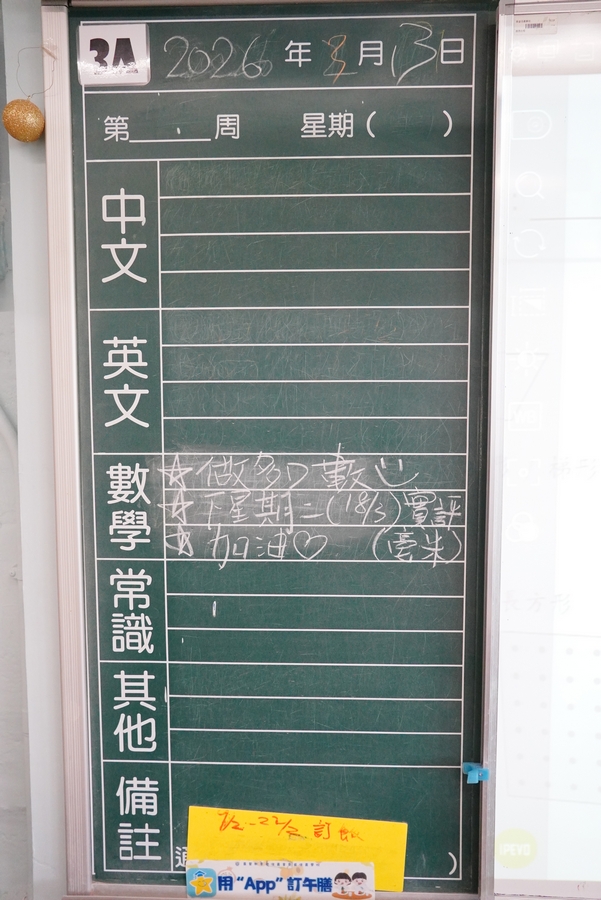 3A
2026 年 3 月 13 日
第 周 星期 ( )
中文
英文
數學
☆ 做多口數
☆ 下星期二 (18/3) 實評
☆ 加油♡ (毫米)
常識
其他
備註
訂飯
用“App”訂午膳
)